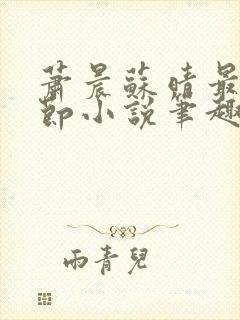 蕭晨蘇晴最
節小說筆趣
雨青兒